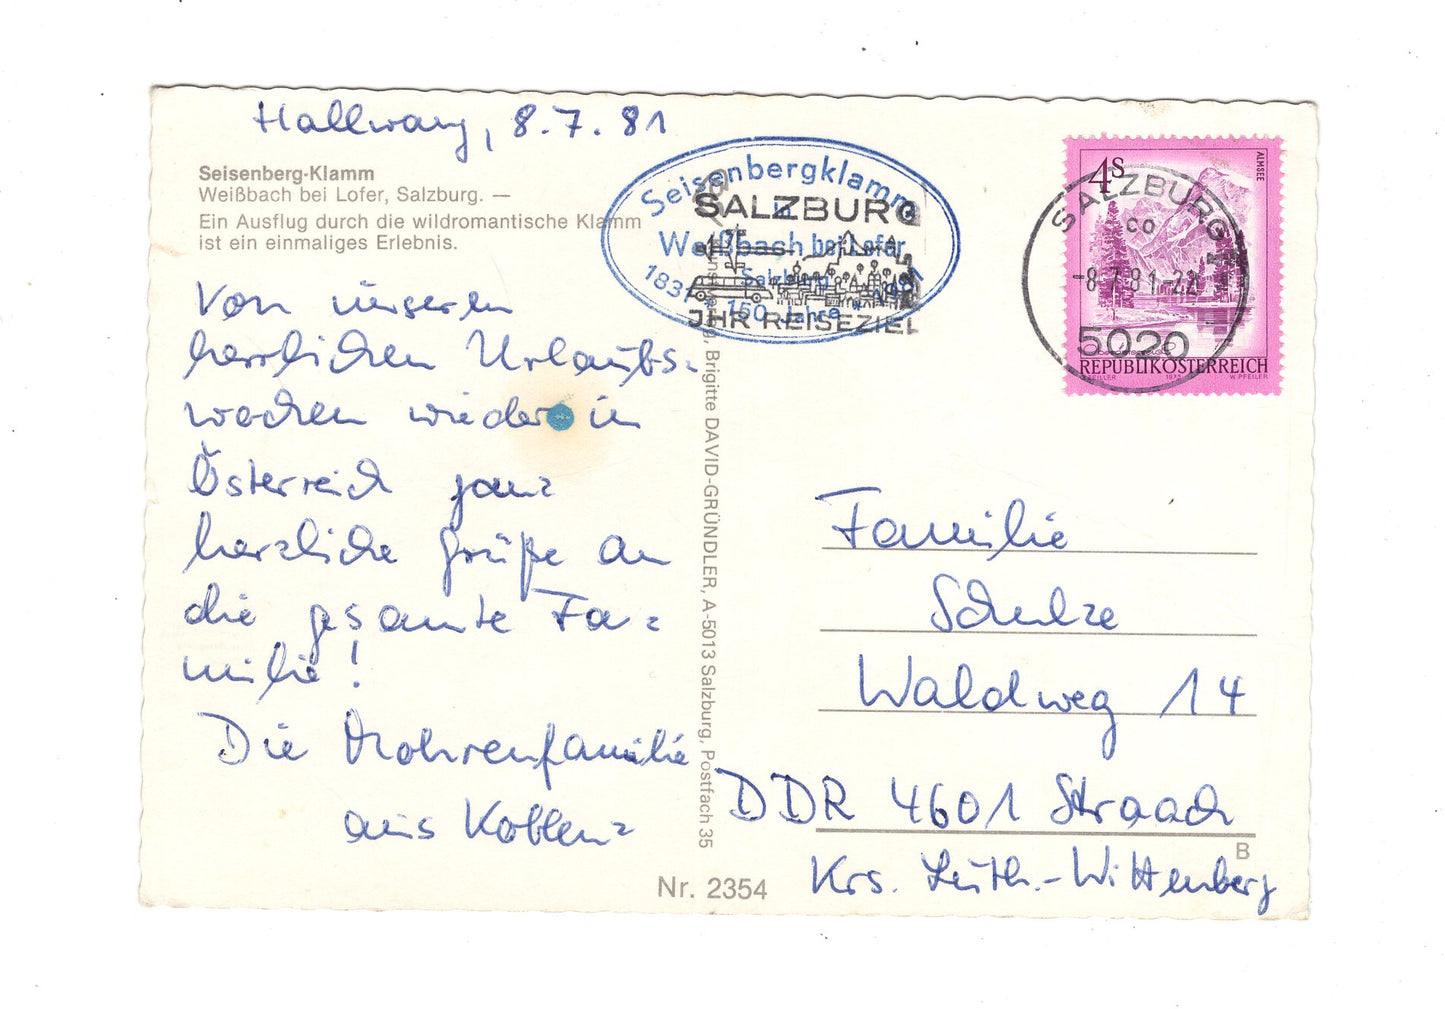 Hallwang, 8.7.81
Seisenberg-Klamm
Weißbach bei Lofer, Salzburg. —
Ein Ausflug durch die wildromantische Klamm
ist ein einmaliges Erlebnis.
Von unseren
herrlichen Urlaubs-
wochen wieder in
Österreich ganz
herzliche Grüße an
die gesamte Fa=
milie!
Die Mohrenfamilie
aus Koblenz
Seisenbergklamm
in
Weißbach bei Lofer
Salzburg
1831 * 150 Jahre * 1981
SALZBURG
IHR REISEZIEL
Brigitte DAVID-GRÜNDLER, A-5013 Salzburg, Postfach 35
Nr. 2354
4S
ALMSEE
REPUBLIK ÖSTERREICH
W. PFEILER
SALZBURG
CO
-8.7.81-22
5020
Familie
Schulze
Waldweg 14
DDR 4601 Straach
Krs. Luth.-Wittenberg
B